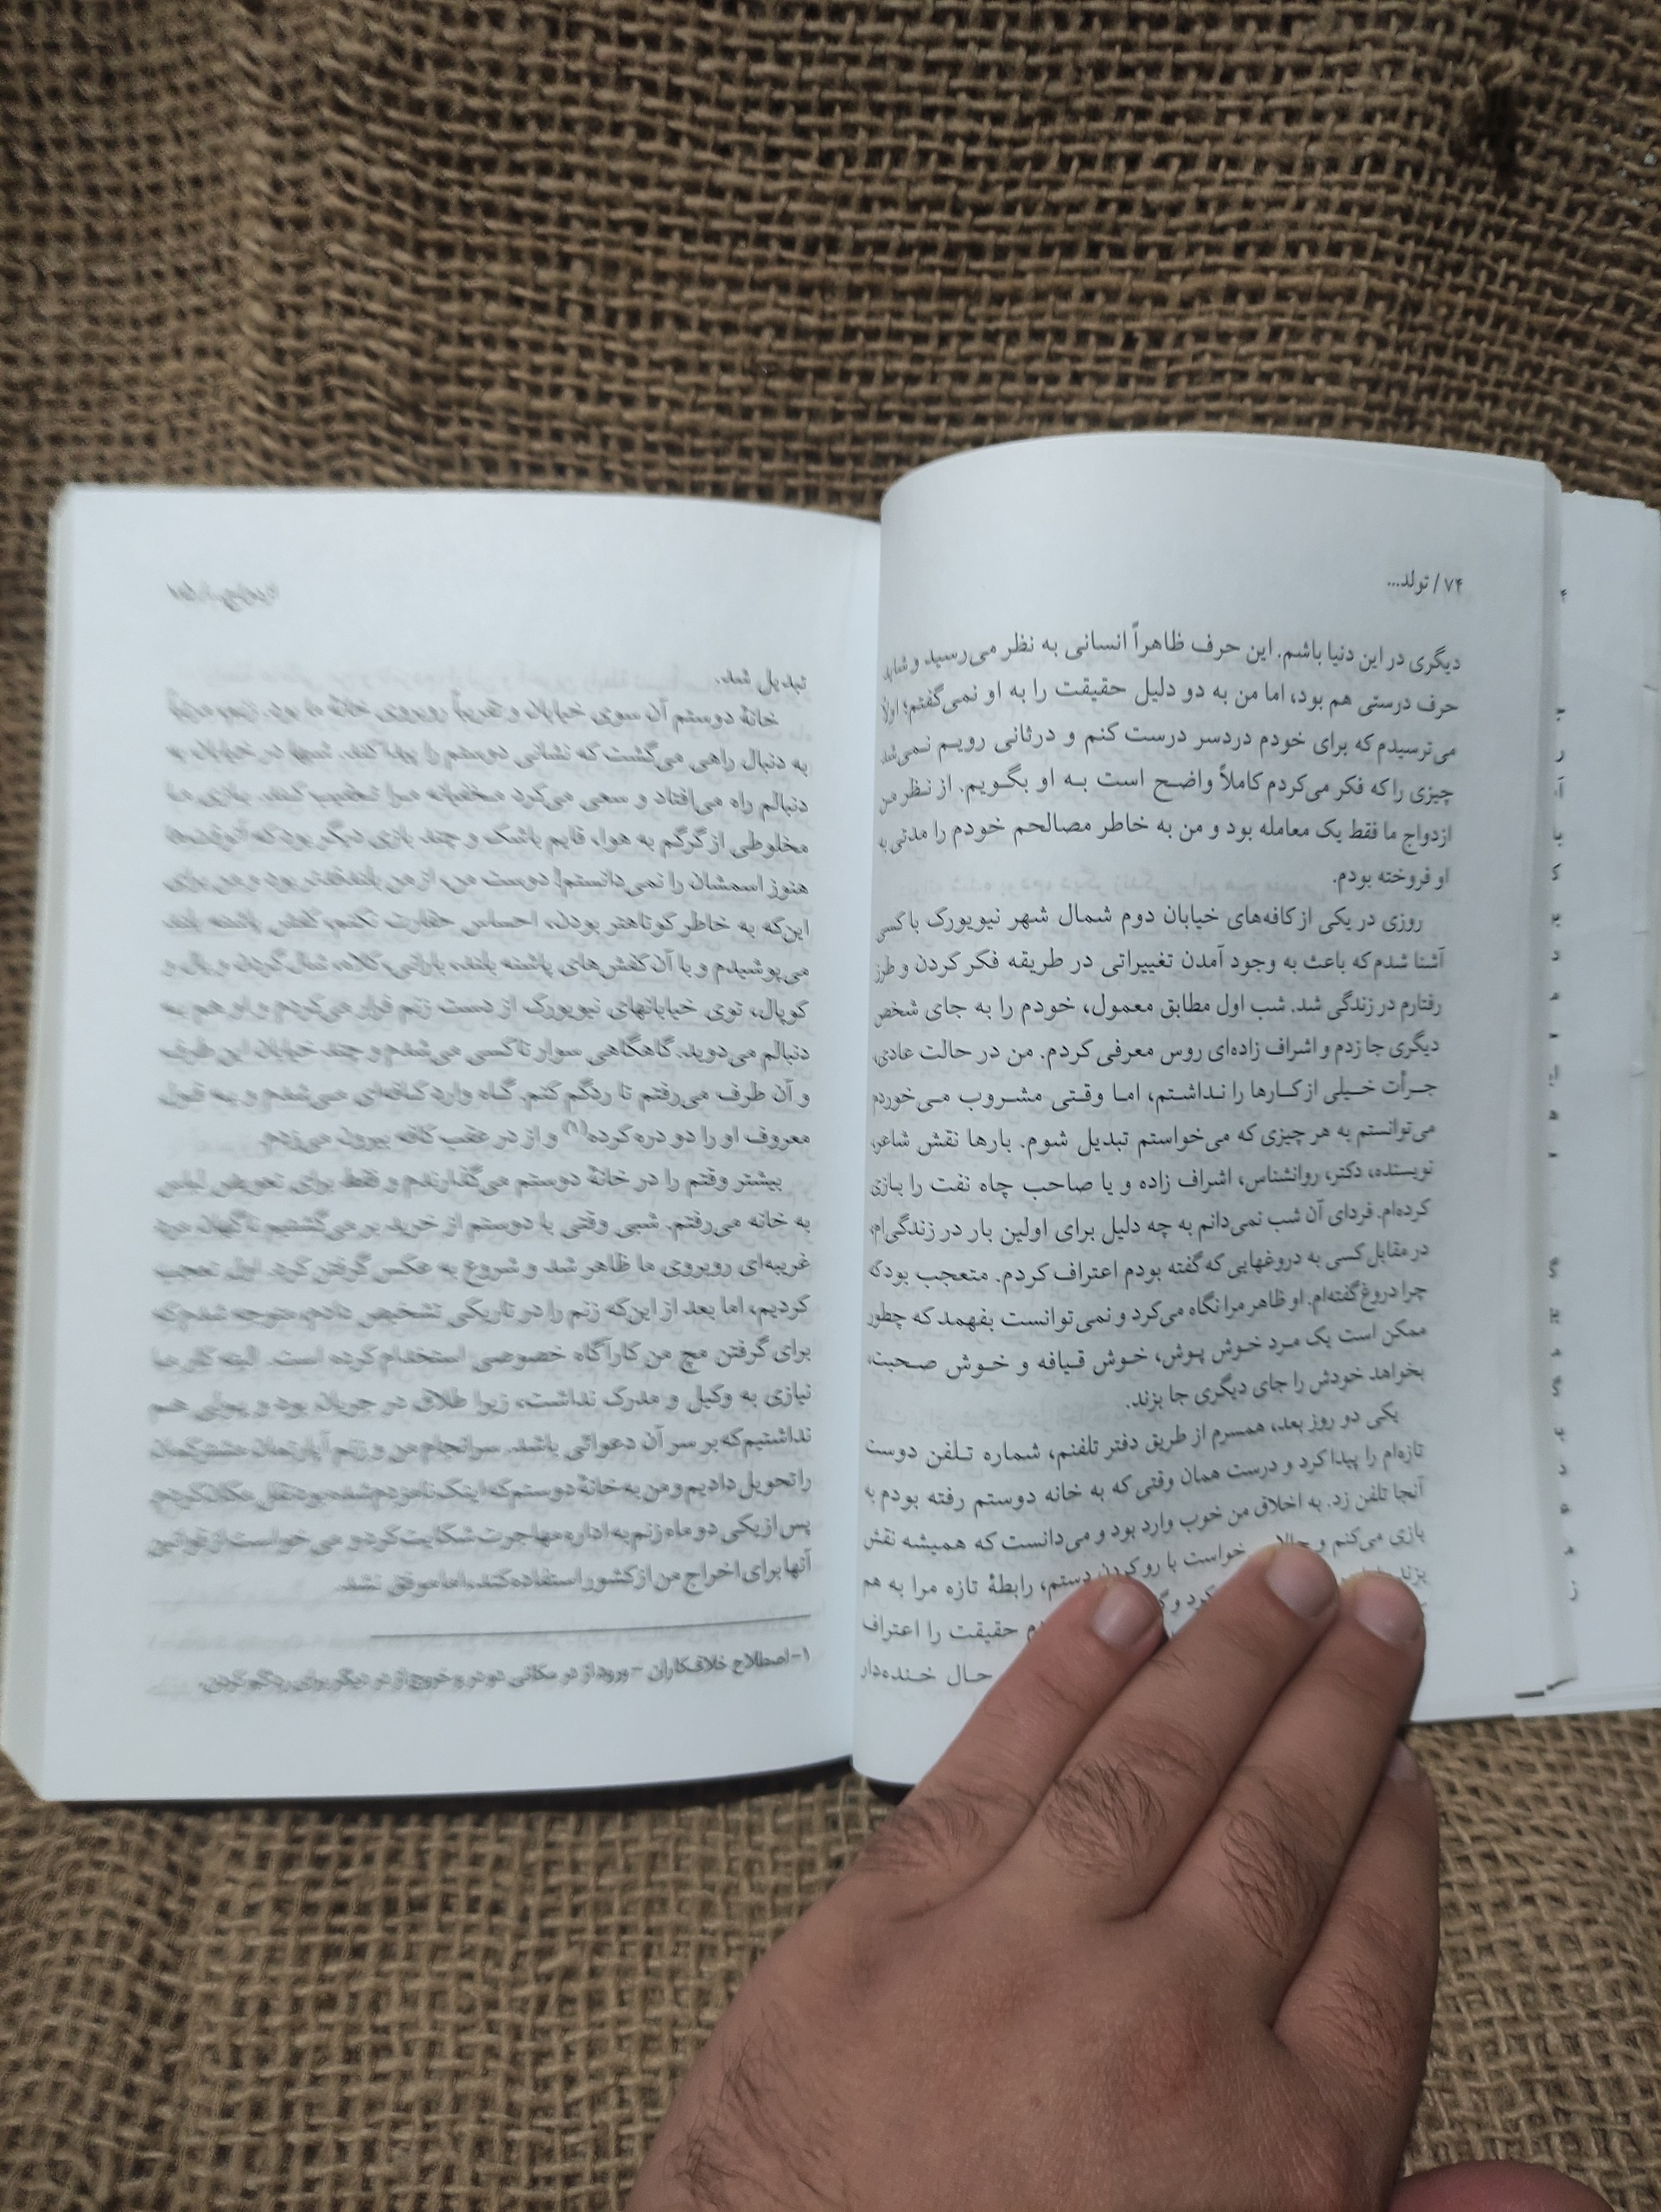 ۷۴ / تولد...
دیگری در این دنیا باشم. این حرف ظاهراً انسانی به نظر می‌رسید و شاید
حرف درستی هم بود، اما من به دو دلیل حقیقت را به او نمی‌گفتم؛ اولاً
می‌ترسیدم که برای خودم دردسر درست کنم و درثانی رویم نمی‌شد
چیزی را که فکر می‌کردم کاملاً واضح است به او بگویم. از نظر من
ازدواج ما فقط یک معامله بود و من به خاطر مصالحم خودم را مدتی به
او فروخته بودم.
روزی در یکی از کافه‌های خیابان دوم شمال شهر نیویورک با کسی
آشنا شدم که باعث به وجود آمدن تغییراتی در طریقه فکر کردن و طرز
رفتارم در زندگی شد. شب اول مطابق معمول، خودم را به جای شخص
دیگری جا زدم و اشراف زاده‌ای روس معرفی کردم. من در حالت عادی،
جرأت خیلی از کارها را نداشتم، اما وقتی مشروب می‌خوردم
می‌توانستم به هر چیزی که می‌خواستم تبدیل شوم. بارها نقش شاعر،
نویسنده، دکتر، روانشناس، اشراف زاده و یا صاحب چاه نفت را بازی
کرده‌ام. فردای آن شب نمی‌دانم به چه دلیل برای اولین بار در زندگی‌ام،
در مقابل کسی به دروغهایی که گفته بودم اعتراف کردم. متعجب بود که
چرا دروغ گفته‌ام. او ظاهر مرا نگاه می‌کرد و نمی‌توانست بفهمد که چطور
ممکن است یک مرد خوش پوش، خوش قیافه و خوش صحبت،
بخواهد خودش را جای دیگری جا بزند.
یکی دو روز بعد، همسرم از طریق دفتر تلفنم، شماره تلفن دوست
تازه‌ام را پیدا کرد و درست همان وقتی که به خانه دوستم رفته بودم به
آنجا تلفن زد. به اخلاق من خوب وارد بود و می‌دانست که همیشه نقش
بازی می‌کنم و حالا خواست با رو کردن دستم، رابطهٔ تازه مرا به هم
بزند کرد و حقیقت را اعتراف
حال خنده‌دار
تبدیل شد.
خانهٔ دوستم آن سوی خیابان و تقریباً روبروی خانهٔ ما بود. زنم مرتباً
به دنبال راهی می‌گشت که نشانی دوستم را پیدا کند. شبها در خیابان به
دنبالم راه می‌افتاد و سعی می‌کرد مخفیانه مرا تعقیب کند. بازی ما
مخلوطی از گرگم به هوا، قایم باشک و چند بازی دیگر بود که آنوقت‌ها
هنوز اسمشان را نمی‌دانستم! دوست من، از من بلندقدتر بود و من برای
این‌که به خاطر کوتاهتر بودن، احساس حقارت نکنم، کفش پاشنه بلند
می‌پوشیدم و با آن کفش‌های پاشنه بلند، بارانی، کلاه، شال گردن و یال و
کوپال، توی خیابانهای نیویورک از دست زنم فرار می‌کردم و او هم به
دنبالم می‌دوید. گاهگاهی سوار تاکسی می‌شدم و چند خیابان این طرف
و آن طرف می‌رفتم تا ردگم کنم. گاه وارد کافه‌ای می‌شدم و به قول
معروف او را دو دره کرده(۱) و از در عقب کافه بیرون می‌زدم.
بیشتر وقتم را در خانهٔ دوستم می‌گذراندم و فقط برای تعویض لباس
به خانه می‌رفتم. شبی وقتی با دوستم از خرید بر می‌گشتیم ناگهان مرد
غریبه‌ای روبروی ما ظاهر شد و شروع به عکس گرفتن کرد. اول تعجب
کردیم، اما بعد از این‌که زنم را در تاریکی تشخیص دادم، متوجه شدم که
برای گرفتن مچ من کارآگاه خصوصی استخدام کرده است. البته کار ما
نیازی به وکیل و مدرک نداشت، زیرا طلاق در جریان بود و پولی هم
نداشتیم که بر سر آن دعوائی باشد. سرانجام من و زنم آپارتمان مشترکمان
را تحویل دادیم و من به خانهٔ دوستم که اینک نامزدم شده بود نقل مکان کردم.
پس از یکی دو ماه زنم به اداره مهاجرت شکایت کرد و می‌خواست از قوانین
آنها برای اخراج من از کشور استفاده کند، اما موفق نشد.
۱- اصطلاح خلافکاران - ورود از در مکانی دو در و خروج از در دیگر برای ردگم کردن.